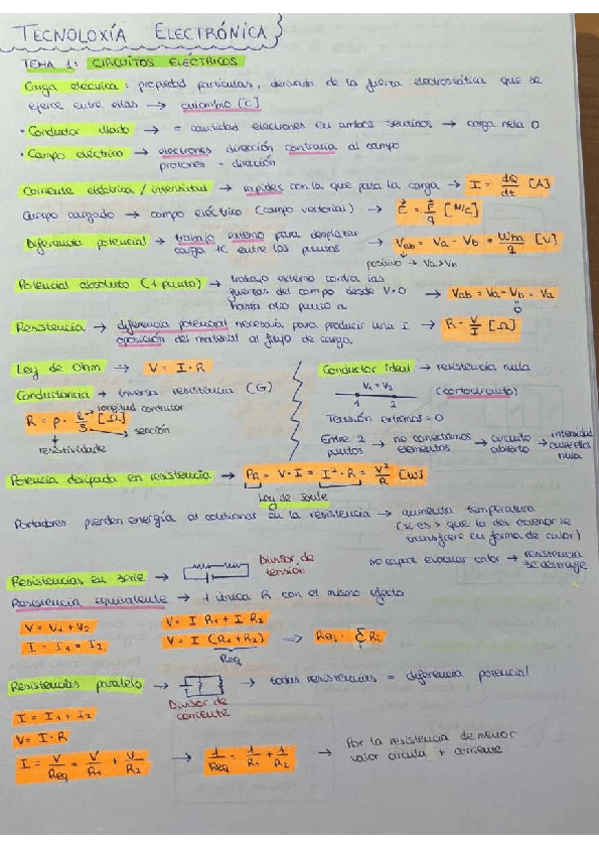 TECNOLOXÍA ELECTRÓNICA
TEMA 1: CIRCUITOS ELÉCTRICOS
Carga eléctrica: propiedad partículas, derivada de la fuerza electrostática que se
ejerce entre ellas → culombio [C]
• Conductor aislado → = cantidad electrones en ambos sentidos → carga neta 0
• Campo eléctrico → electrones dirección contraria al campo
protones = dirección
Corriente eléctrica / intensidad → rapidez con la que pasa la carga → I = dQ/dt [A]
Cuerpo cargado → campo eléctrico (campo vectorial) → E = F/q [N/C]
Diferencia potencial → trabajo externo para desplazar → Vab = Va - Vb = Wba/q [V]
carga +c entre los puntos
positivo → Va>Vb
Potencial absoluto (1 punto) → trabajo externo contra las
fuerzas del campo desde V=0 → Vab = Va - Vb = Va
hasta otro punto a
0
Resistencia → diferencia potencial necesaria para producir una I → R = V/I [Ω]
oposición del material al flujo de carga
Ley de Ohm → V = I · R
Conductor ideal → resistencia nula
Conductancia → inversa resistencia (G)
V1 = V2
1 2
(cortocircuito)
longitud conductor
R = ρ · l/S [Ω]
sección
resistividade
Tensión extremos = 0
Entre 2 puntos → no conectamos elementos → circuito abierto → intensidad entre ellos nula
Potencia disipada en resistencia → PR = V · I = I² · R = V²/R [W]
Ley de Joule
Portadores pierden energía al colisionar en la resistencia → aumenta temperatura
(si es > que la del exterior se
transfiere en forma de calor)
no capaz evacuar calor → resistencia
se destruye
Resistencias en serie →
Divisor de
tensión
Resistencia equivalente → 1 única R con el mismo efecto
V = V1 + V2
V = I R1 + I R2
I = I1 = I2
V = I (R1 + R2) → Req = Σ Ri
Req
Resistencias paralelo → → todas resistencias = diferencia potencial
Divisor de
corriente
I = I1 + I2
V = I · R
I = V/Req = V/R1 + V/R2 → 1/Req = 1/R1 + 1/R2 → Por la resistencia de menor
valor circula + corriente